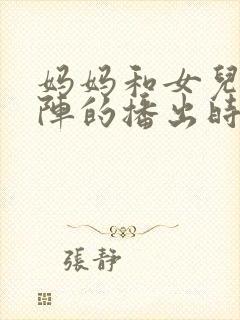 妈妈和女兒
陣的播出時
張靜